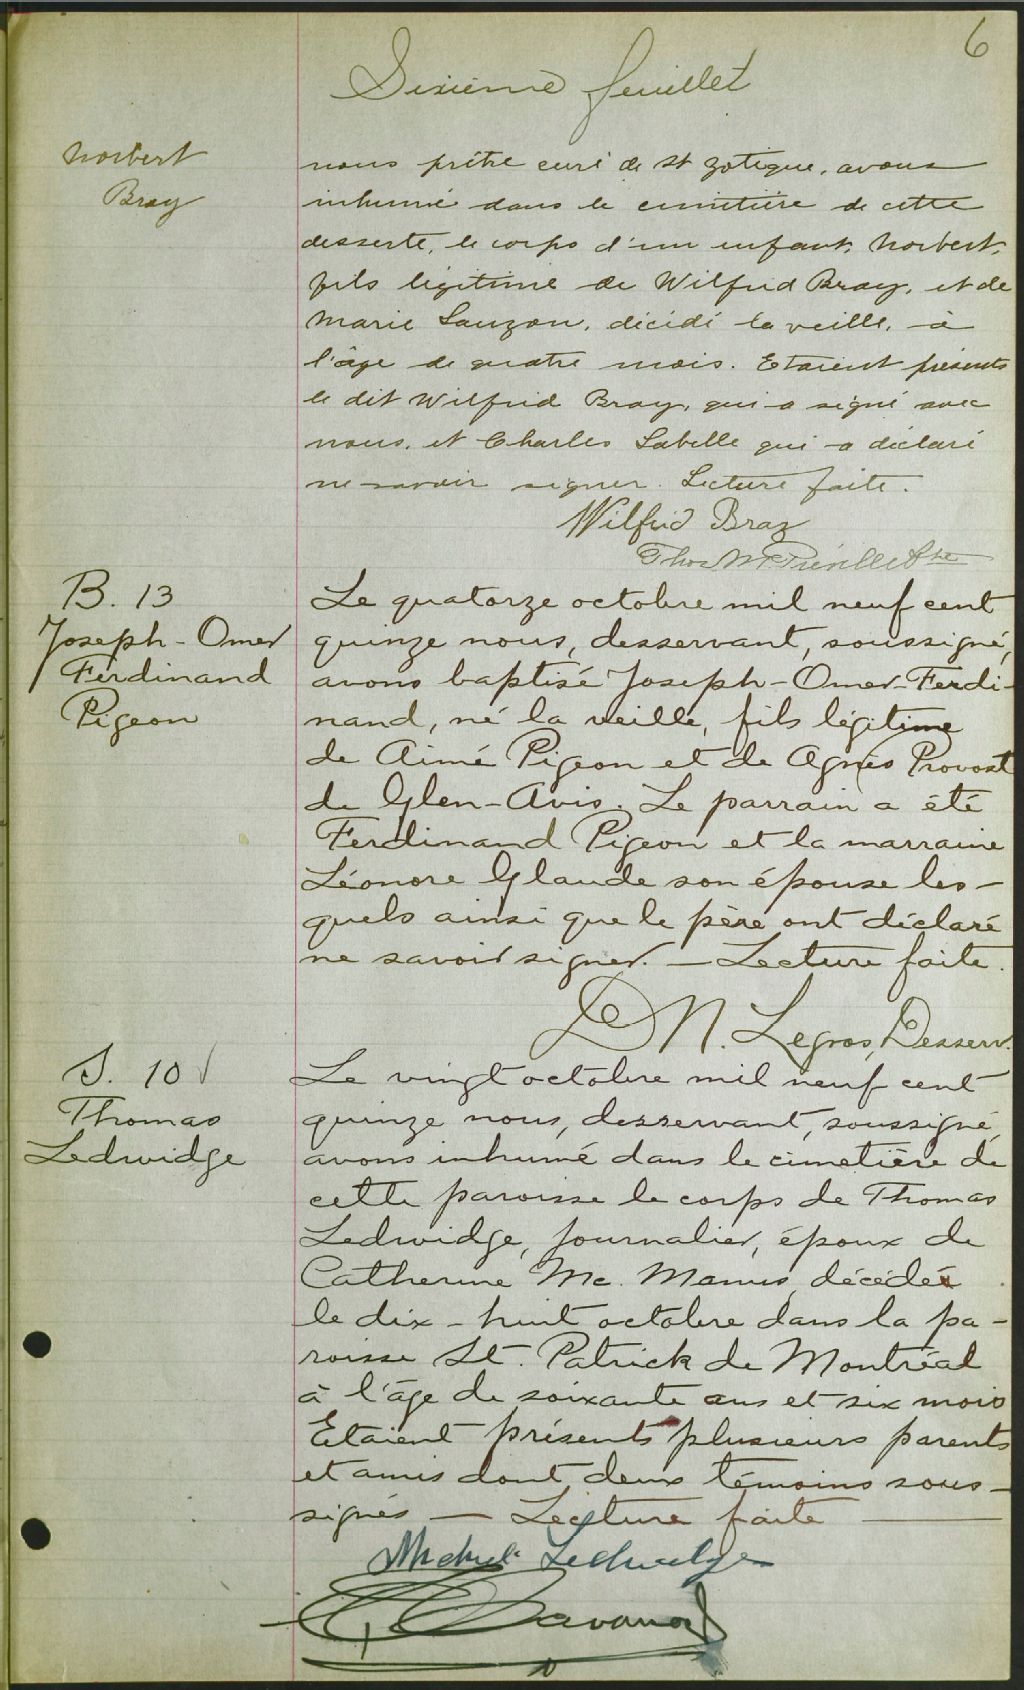 6
Sixième feuillet
Norbert
Bray
nous prêtre curé de St Zotique, avons
inhumé dans le cimetière de cette
desserte, le corps d'un enfant, Norbert,
fils légitime de Wilfrid Bray, et de
Marie Lauzon, décédé la veille, à
l'âge de quatre mois. Etaient présents
le dit Wilfrid Bray, qui a signé avec
nous, et Charles Labelle qui a déclaré
ne savoir signer. Lecture faite.
Wilfrid Bray
Thos Ptre
B. 13
Joseph-Omer
Ferdinand
Pigeon
Le quatorze octobre mil neuf cent
quinze nous, desservant, soussigné,
avons baptisé Joseph-Omer-Ferdi-
nand, né la veille, fils légitime
de Aimé Pigeon et de Agnès Provost
de Glen-Avis. Le parrain a été
Ferdinand Pigeon et la marraine
Léonore Glaude son épouse les-
quels ainsi que le père ont déclaré
ne savoir signer. — Lecture faite.
D N. Legros, Desserv.
S. 10
Thomas
Ledwidge
Le vingt octobre mil neuf cent
quinze nous, desservant, soussigné
avons inhumé dans le cimetière de
cette paroisse le corps de Thomas
Ledwidge, journalier, époux de
Catherine Mc. Manus, décédé
le dix-huit octobre dans la pa-
roisse St. Patrick de Montréal
à l'âge de soixante ans et six mois
Etaient présents plusieurs parents
et amis dont deux témoins sous-
signés — Lecture faite —
Ledwidge